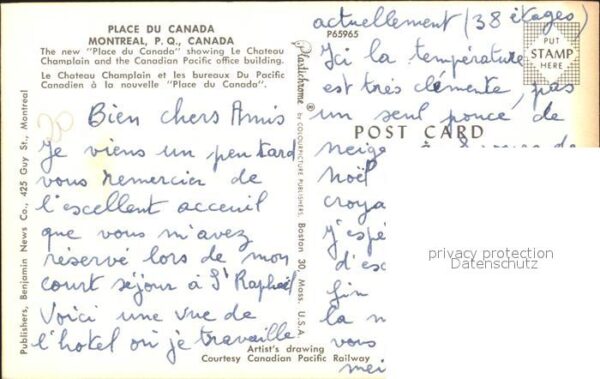 PLACE DU CANADA
MONTREAL, P. Q., CANADA
The new "Place du Canada" showing Le Chateau
Champlain and the Canadian Pacific office building.
Le Chateau Champlain et les bureaux Du Pacific
Canadien à la nouvelle "Place du Canada".
Bien chers Amis
Je viens un peu tard
vous remercier de
l'excellent acceuil
que vous m'avez
réservé lors de mon
court séjour à St Raphaël
Voici une vue de
l'hotel où je travaille
Artist's drawing
Courtesy Canadian Pacific Railway
Publishers, Benjamin News Co., 425 Guy St., Montreal
Plastichrome ® by COLOURPICTURE PUBLISHERS, Boston 30, Mass. U.S.A.
actuellement (38 étages)
P65965
PUT
STAMP
HERE
Ici la température
est très clémente, pas
un seul pouce de
POST CARD
neige à de
Noël
croya
J'espé
d'esc
fin
la n
vous
mei
privacy protection
Datenschutz